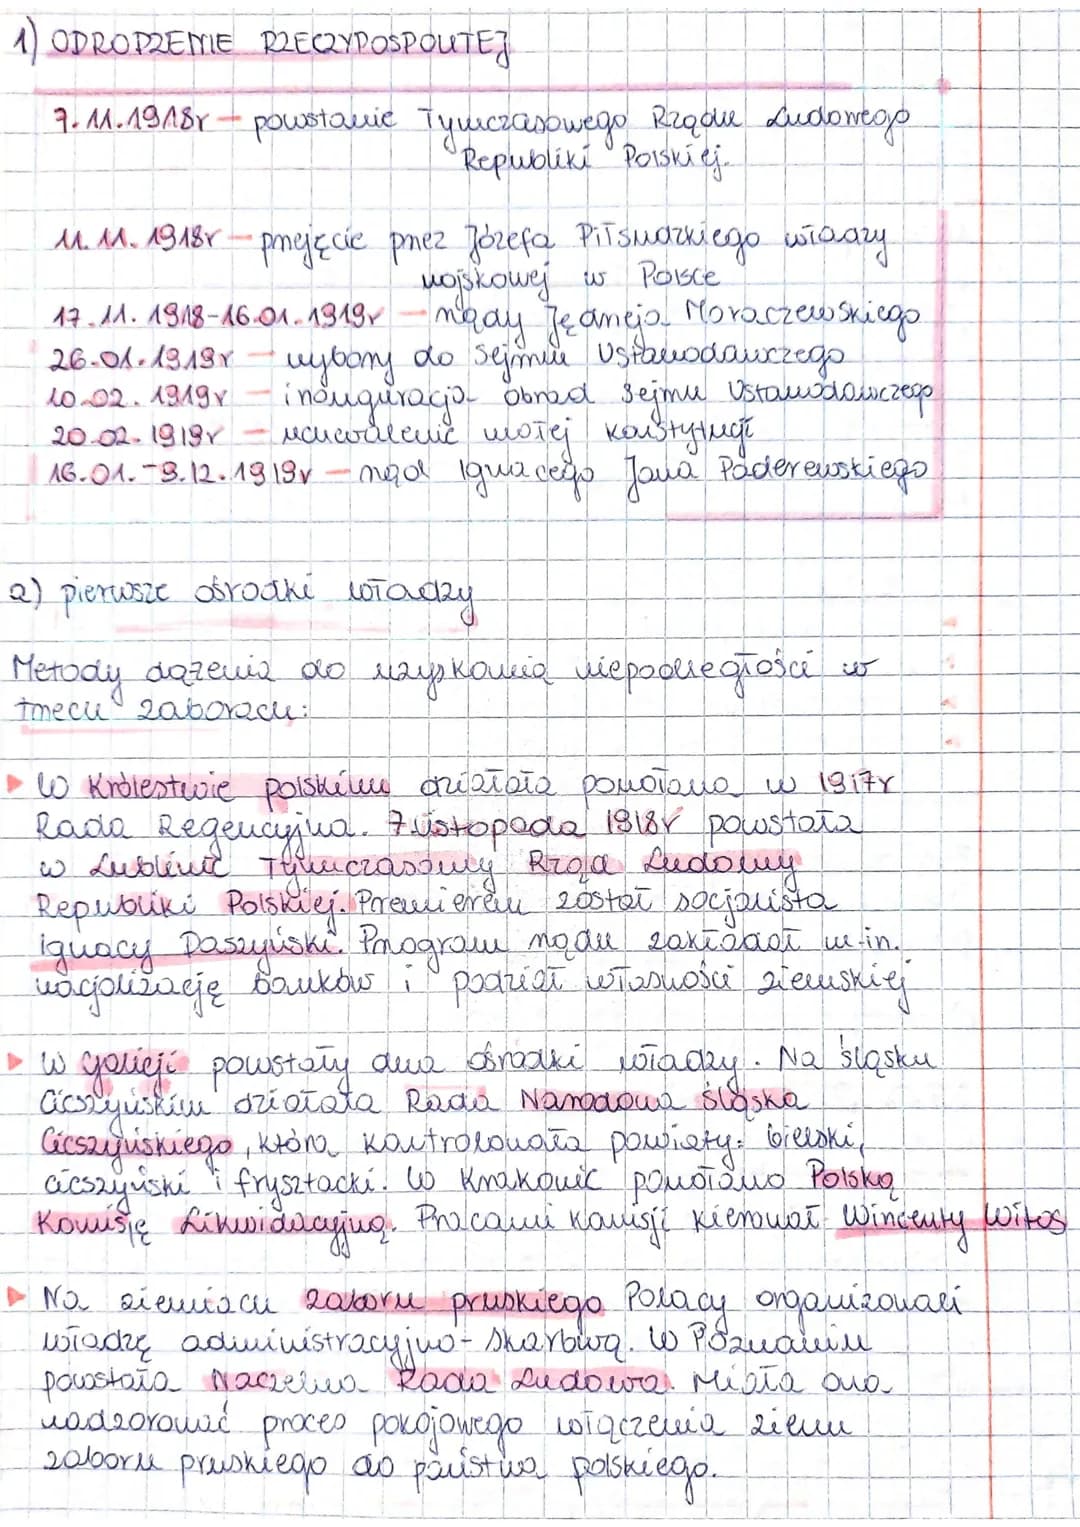 1) ODRODZENIE RZECZYPOSPOLITEJ
7.11.1918r – powstanie Tymczasowego Rządu Ludowego
Republiki Polskiej.
11.11.1918r – przejęcie przez Józefa Piłsudzkiego władzy
wojskowej w Polsce
17.11.1918-16.01.1919r – rządy Jędrzeja Moraczewskiego
26.01.1919r – wybory do Sejmu Ustawodawczego
10.02.1919r – inauguracja obrad Sejmu Ustawodawczego
20.02.1919r – uchwalenie małej konstytucji
16.01.-9.12.1919r – rząd Ignacego Jana Paderewskiego
a) pierwsze ośrodki władzy
Metody dążenia do uzyskania niepodległości w
trzech zaborach:
▸ W Królestwie polskim działała powołana w 1917r
Rada Regencyjna. 7 listopada 1918r powstała
w Lublinie Tymczasowy Rząd Ludowy
Republiki Polskiej. Premierem został socjalista
Ignacy Daszyński. Program rządu zakładał m.in.
nacjolizację banków i podział własności ziemskiej
▸ W galicji powstały dwa ośrodki władzy. Na śląsku
Cieszyńskim działała Rada Narodowa Śląska
Cieszyńskiego, która kontrolowała powiaty: bielski,
cieszyński i frysztacki. W Krakowie powołano Polską
Komisję Likwidacyjną. Pracami komisji kierował Wincenty Witos
▸ Na ziemiach zaboru pruskiego Polacy organizowali
władzę administracyjno-skarbową. W Poznaniu
powstała Naczelna Rada Ludowa. Miała ona
nadzorować proces pokojowego włączenia ziem
zaboru pruskiego do państwa polskiego.